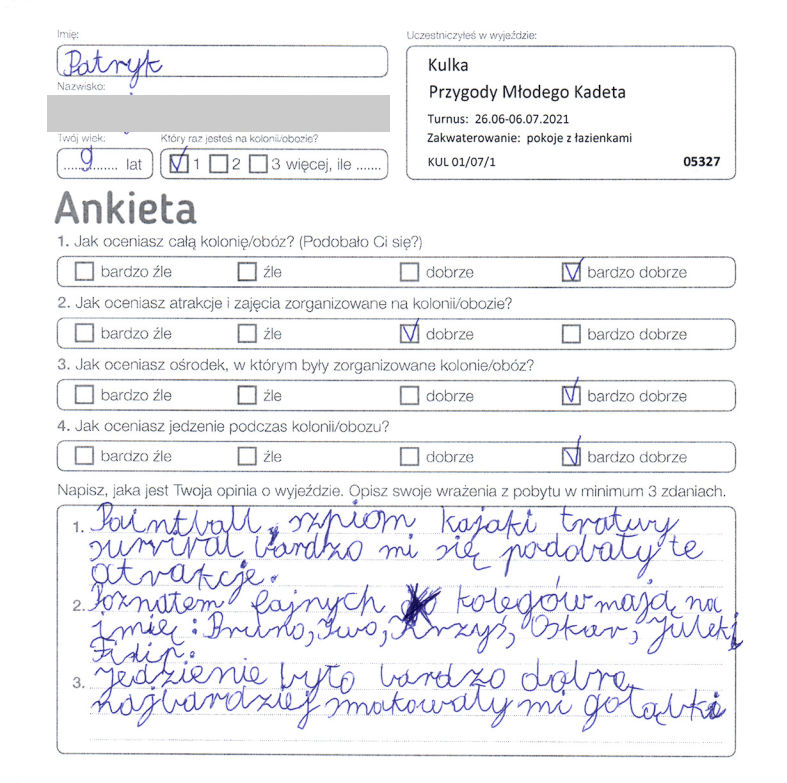 Imię:
Patryk
Nazwisko:
Twój wiek:
9 lat
Który raz jesteś na kolonii/obozie?
1 2 3 więcej, ile .......
Uczestniczyłeś w wyjeździe:
Kulka
Przygody Młodego Kadeta
Turnus: 26.06-06.07.2021
Zakwaterowanie: pokoje z łazienkami
KUL 01/07/1 05327
Ankieta
1. Jak oceniasz całą kolonię/obóz? (Podobało Ci się?)
bardzo źle źle dobrze bardzo dobrze
2. Jak oceniasz atrakcje i zajęcia zorganizowane na kolonii/obozie?
bardzo źle źle dobrze bardzo dobrze
3. Jak oceniasz ośrodek, w którym były zorganizowane kolonie/obóz?
bardzo źle źle dobrze bardzo dobrze
4. Jak oceniasz jedzenie podczas kolonii/obozu?
bardzo źle źle dobrze bardzo dobrze
Napisz, jaka jest Twoja opinia o wyjeździe. Opisz swoje wrażenia z pobytu w minimum 3 zdaniach.
1. Paintball, szpiom kajaki tratwy
survival bardzo mi się podobały te
atrakcje.
2. Poznałem fajnych kolegów mają na
imię: Bruno, Iwo, Krzyś, Oskar, Julek i
Filip.
3. Jedzienie było bardzo dobre
najbardziej smakowały mi gołąbki